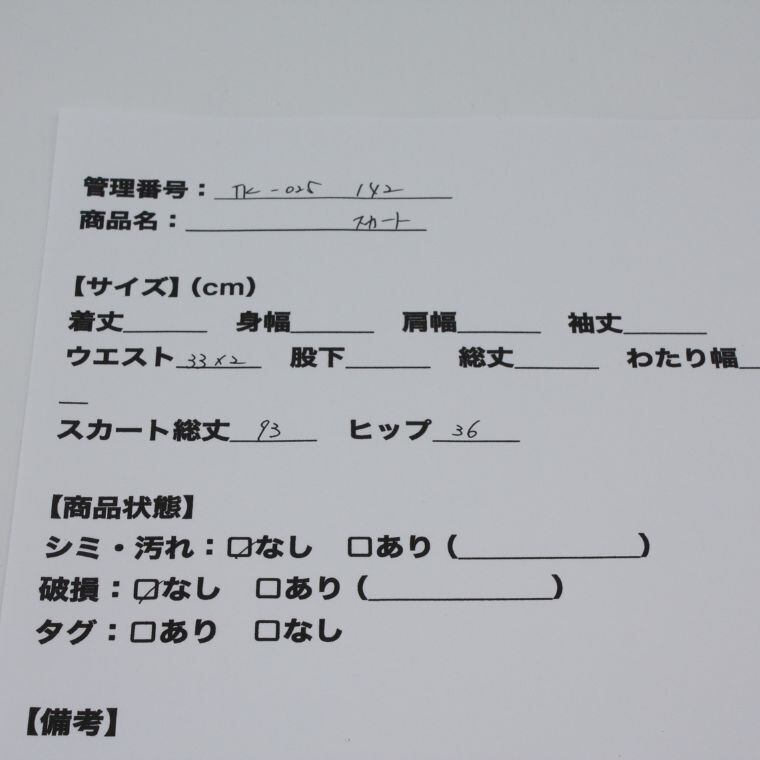 管理番号：TK-025 142
商品名：スカート
【サイズ】(cm)
着丈______ 身幅______ 肩幅______ 袖丈______
ウエスト 33×2 股下______ 総丈______ わたり幅__
__
スカート総丈 93 ヒップ 36
【商品状態】
シミ・汚れ：☑なし □あり (____________)
破損：☑なし □あり (____________)
タグ：□あり □なし
【備考】